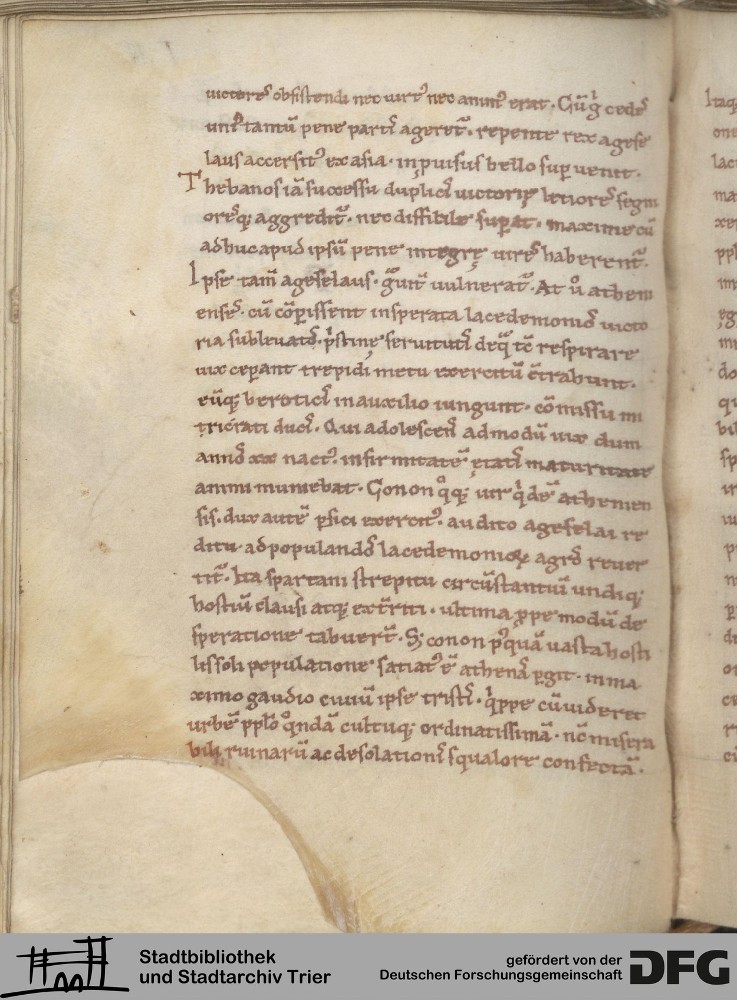 uictores obsistendi nec uirt᾽ nec animꝰ erat. Cū g̊ cedes
uniꝰ tantū pene partis ageret᷑. repente rex agese
laus accersitꝰ ex asia. inpuisus bello superuenit.
Thebanos iā successu duplicis uictorię letiores segni
oresq; aggredit᷑. nec difficile superat. maxime cū
adhuc apud ipsū pene integrę uires haberent᷑.
Ipse tam̄ ageselaus. grauit᷑ uulnerat᷑. At ů atheni
enses. cū cōperissent insperata lacedemonios uicto
ria subleuatos. pristine seruitutis deq̄ tc̄ respirare
uix ceperant trepidi metu exercitū ct̄rahunt.
eūq; beroticis in auxilio iungunt. cōmissū mi
tricrati duci. Qui adolescens admodū uix dum
annos xx nactꝰ. infirmitatē ętatis maturitate
animi muniebat. Conon q̊q; uir q̇dē athenien
sis. dux autē persici exercitꝰ. audito ageselai re
ditu. ad populandos lacedemonioꝝ agros reuer
tit᷑. Ita spartani strepitu circūstantiū undiq;
hostiū clausi atq; ext̄riti. ultima ꝓpe modū de
speratione tabuer̄t. S; conon pꝰquā uasta hosti
lis soli populatione satiatꝰ ē athenas pergit. in ma
ximo gaudio ciuiū ipse tristis. q̇ppe cū uideret
urbē ppl̄o q̊ndā cultuq; ordinatissimā. nc̄ misera
bili ruinarū ac desolationis squalore confectā.
Itaq
one
laci
ma
xer
ppl
do
bil
Stadtbibliothek
und Stadtarchiv Trier
gefördert von der
Deutschen Forschungsgemeinschaft
DFG